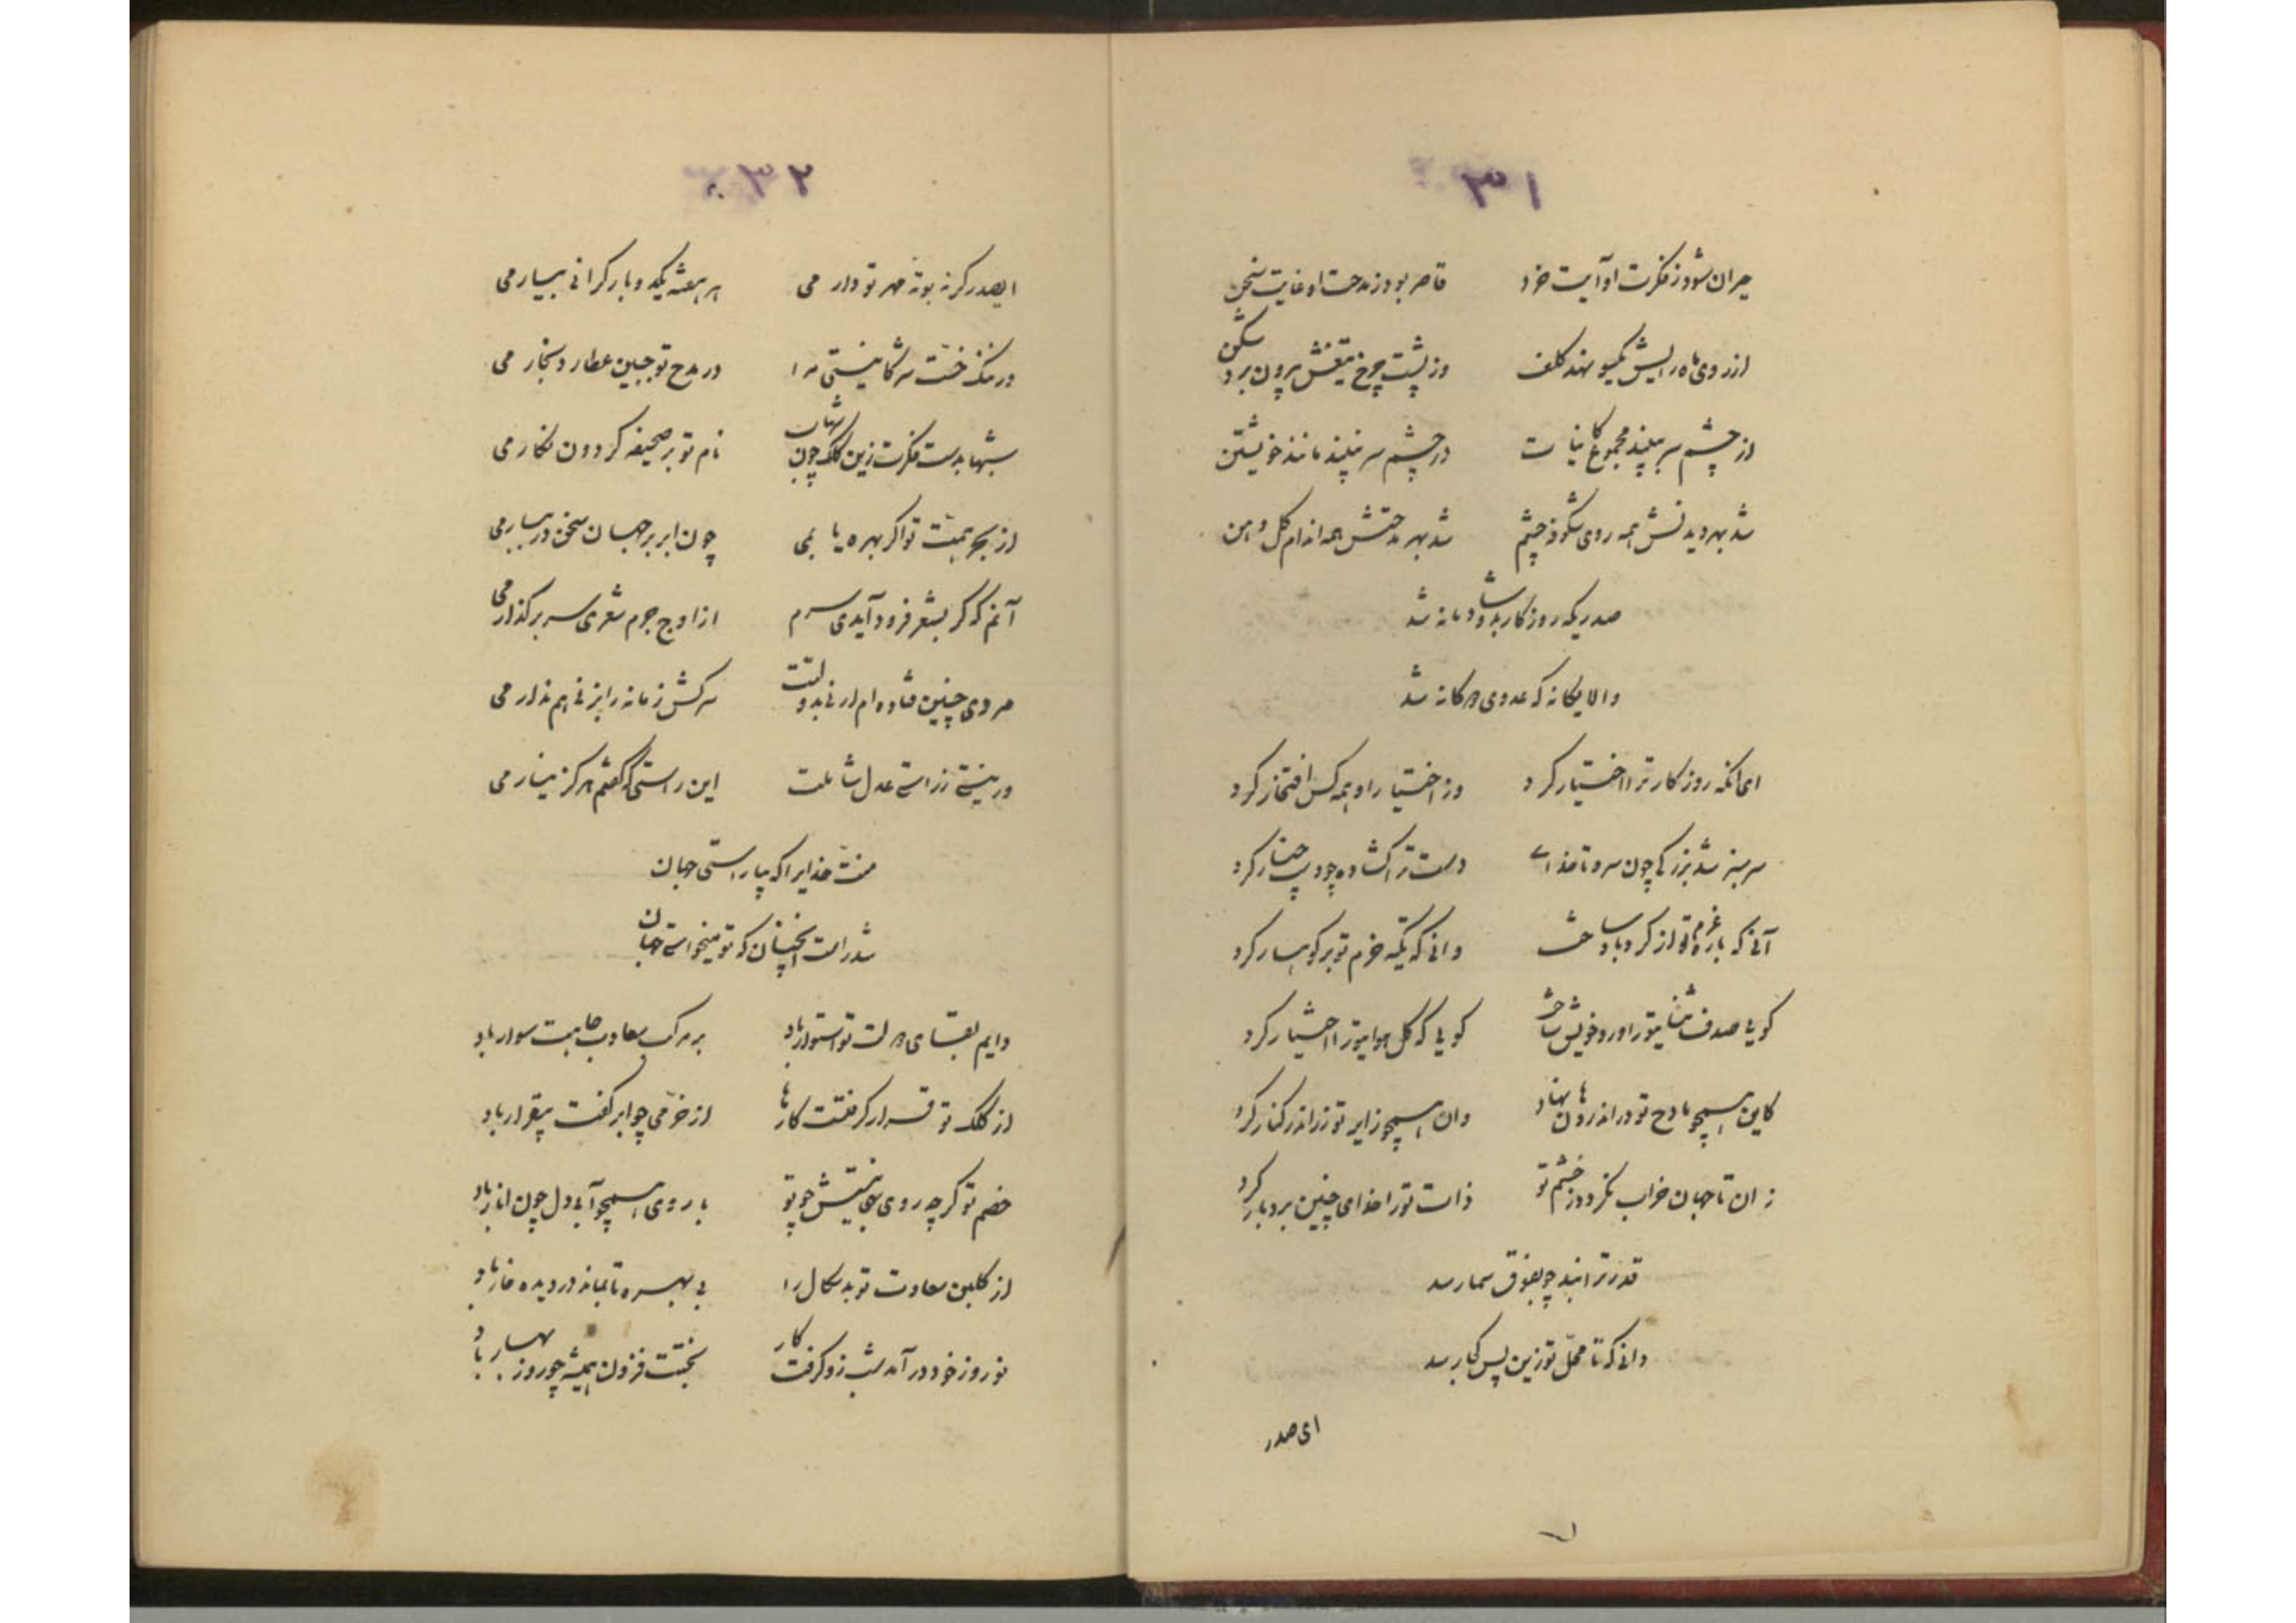 ۳۱
حیران شود ز فکرت او آیت خرد    قاصر بود ز مدحت او غایت سخن
از روی ماه رایش یکسو نهد کلف    وز پشت چرخ تیغش بیرون برد شکن
از چشم سر ببیند مجموع کاینات    در چشم سر نبیند مانند خویشتن
شد بهر دیدنش همه روی شکوفه چشم    شد بهر مدحتش همه اندام گل دهن
صدریکه روزگار بدو شادمانه شد
والا یگانه که عدوی دوگانه شد
ای آنکه روزگار ترا اختیار کرد    وز اختیار او همه کس افتخار کرد
سرسبز شد بزرگی چون سرو تا خدای    دست ترا گشاده چو دست چنار کرد
آنی که باره تو از گرد باد ساخت    وانی که تکیه حزم تو بر کوهسار کرد
گویی صدف ثنای تو را ورد خویش ساخت    گویی که گل هوای ترا اختیار کرد
کاین همچو مادح تو در اندر دهان نهاد    وان همچو زایر تو زر اندر کنار کرد
زان تا جهان خراب نگردد ز خشم تو    ذات تو را خدای چنین بردبار کرد
قدر ترا نبد چو بفوق سما رسد
دانی که تا محل تو زین پس کجا رسد
ای صدر
ایصدر گرنه بوته مهر تو دار می
۳۲
هر هفته یکدو بار گرانی بیار می
ور نیک خشت سرکا نیستی مرا    در مدح تو جبین عطارد بخار می
شبها بدست فکرت زین کلک چون شهاب    نام تو بر صحیفه گردون نگار می
از بحر همت تو اگر بهره یا بمی    چون ابر بر جهان سخن در ببار می
آنم که گر بشعر فرود آیدی سرم    از اوج جرم شعری سر بر گذار می
مردی چنین فتاده ام ار نی بدولتت    سرکش زمانه را بزنی هم ندار می
ور نیستی ز راستی عدل شاملت    این راستی که گفتم هرگز نیار می
منت خدایرا که بیاراستی جهان
شد راست آنچنان که تو میخواستی جهان
دایم بقای دولت تو استوار باد    بر مرکب سعادت جاهت سوار باد
از کلک تو قرار گرفتست کارها    از خرمی چو ابر کفت بیقرار باد
خصم تو گرچه روی بهی نیستش چو تو    با روی همچو آبی دل چون انار باد
از گلبن سعادت تو بدسگال را    بی بهره تا بماند در دیده خار باد
نوروز خود درآمد شب زو گرفت کار    بختت فزون همیشه چو روز بهار باد